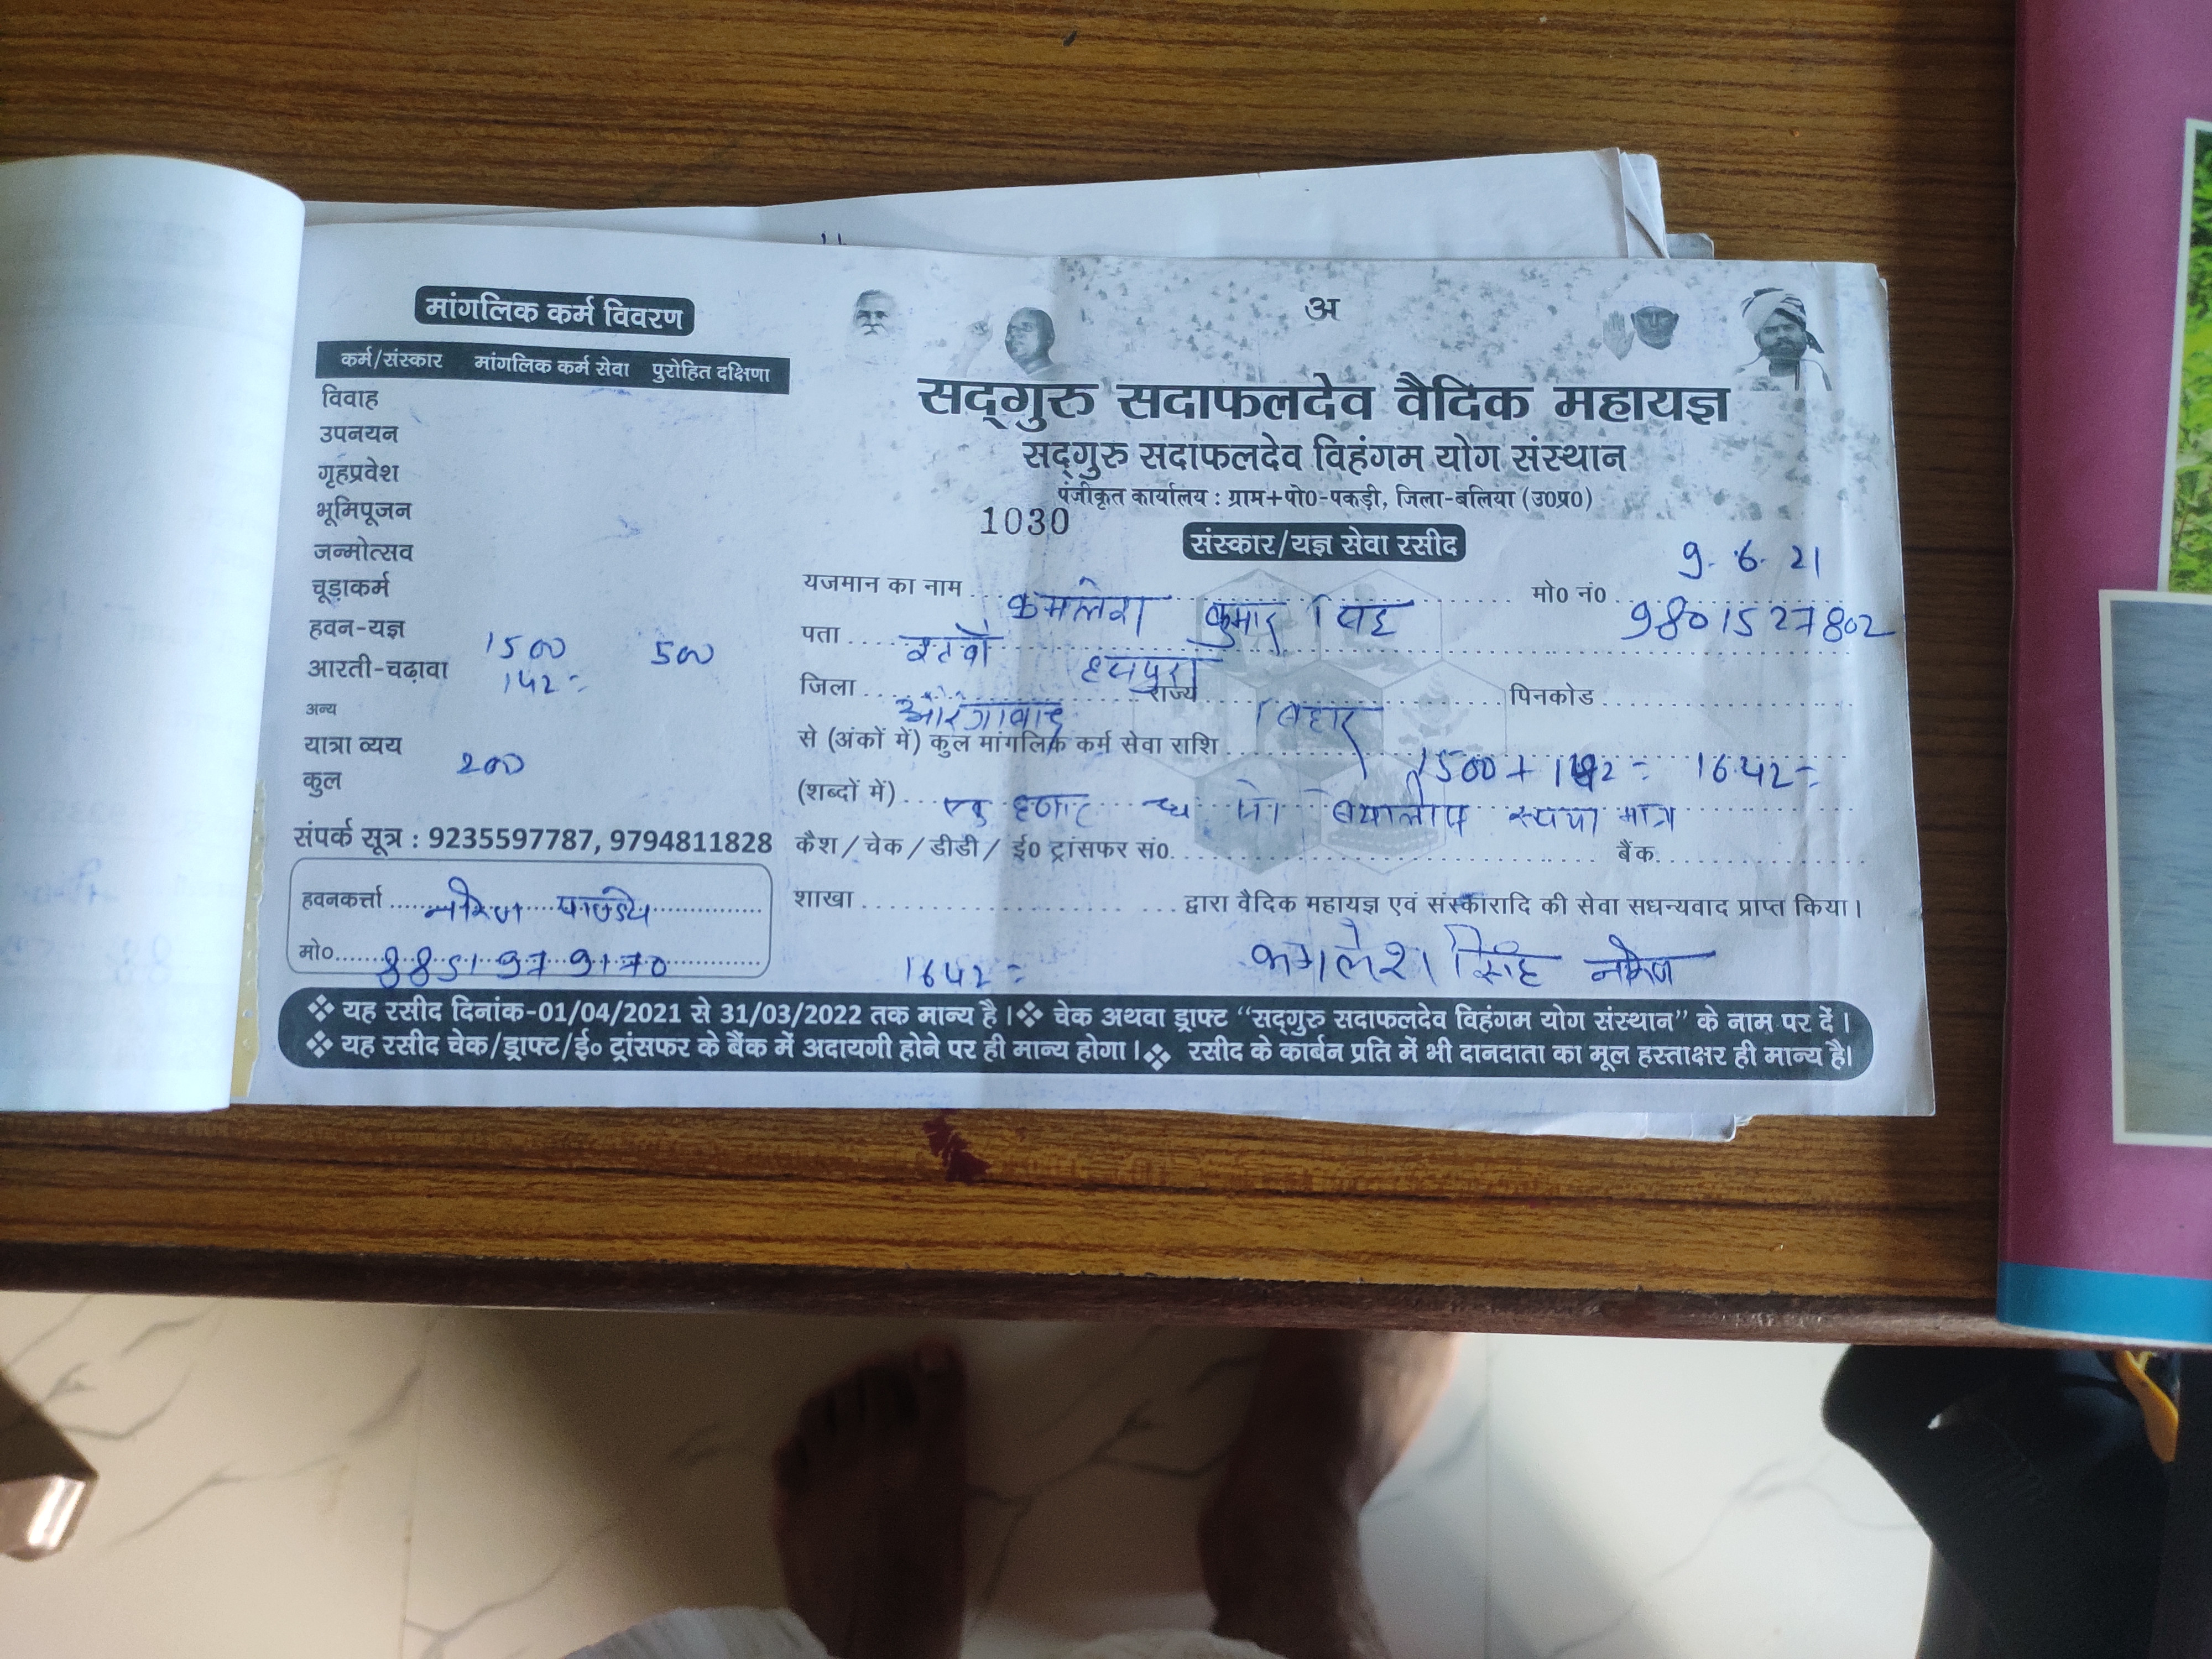 मांगलिक कर्म विवरण
कर्म/संस्कार मांगलिक कर्म सेवा पुरोहित दक्षिणा
विवाह
उपनयन
गृहप्रवेश
भूमिपूजन
जन्मोत्सव
चूड़ाकर्म
हवन-यज्ञ 1500 500
आरती-चढ़ावा 142=
अन्य
यात्रा व्यय
कुल 200
संपर्क सूत्र : 9235597787, 9794811828
हवनकर्त्ता पाण्डेय
मो० 8851979170
अ
सद्गुरु सदाफलदेव वैदिक महायज्ञ
सद्गुरु सदाफलदेव विहंगम योग संस्थान
पंजीकृत कार्यालय : ग्राम+पो0-पकड़ी, जिला-बलिया (उ0प्र0)
1030
संस्कार/यज्ञ सेवा रसीद
9.6.21
यजमान का नाम कमलेश कुमार सिंह मो0 नं0 9801527802
पता हसपुरा
जिला औरंगाबाद राज्य बिहार पिनकोड
से (अंकों में) कुल मांगलिक कर्म सेवा राशि 1500+142= 1642=
(शब्दों में) एक हजार छ सौ बयालीस रूपया मात्र
कैश/चेक/डीडी/ई0 ट्रांसफर सं0. बैंक
शाखा द्वारा वैदिक महायज्ञ एवं संस्कारादि की सेवा सधन्यवाद प्राप्त किया।
1642= कमलेश सिंह
❖ यह रसीद दिनांक-01/04/2021 से 31/03/2022 तक मान्य है।❖ चेक अथवा ड्राफ्ट "सद्गुरु सदाफलदेव विहंगम योग संस्थान" के नाम पर दें।
❖ यह रसीद चेक/ड्राफ्ट/ई० ट्रांसफर के बैंक में अदायगी होने पर ही मान्य होगा।❖ रसीद के कार्बन प्रति में भी दानदाता का मूल हस्ताक्षर ही मान्य है।